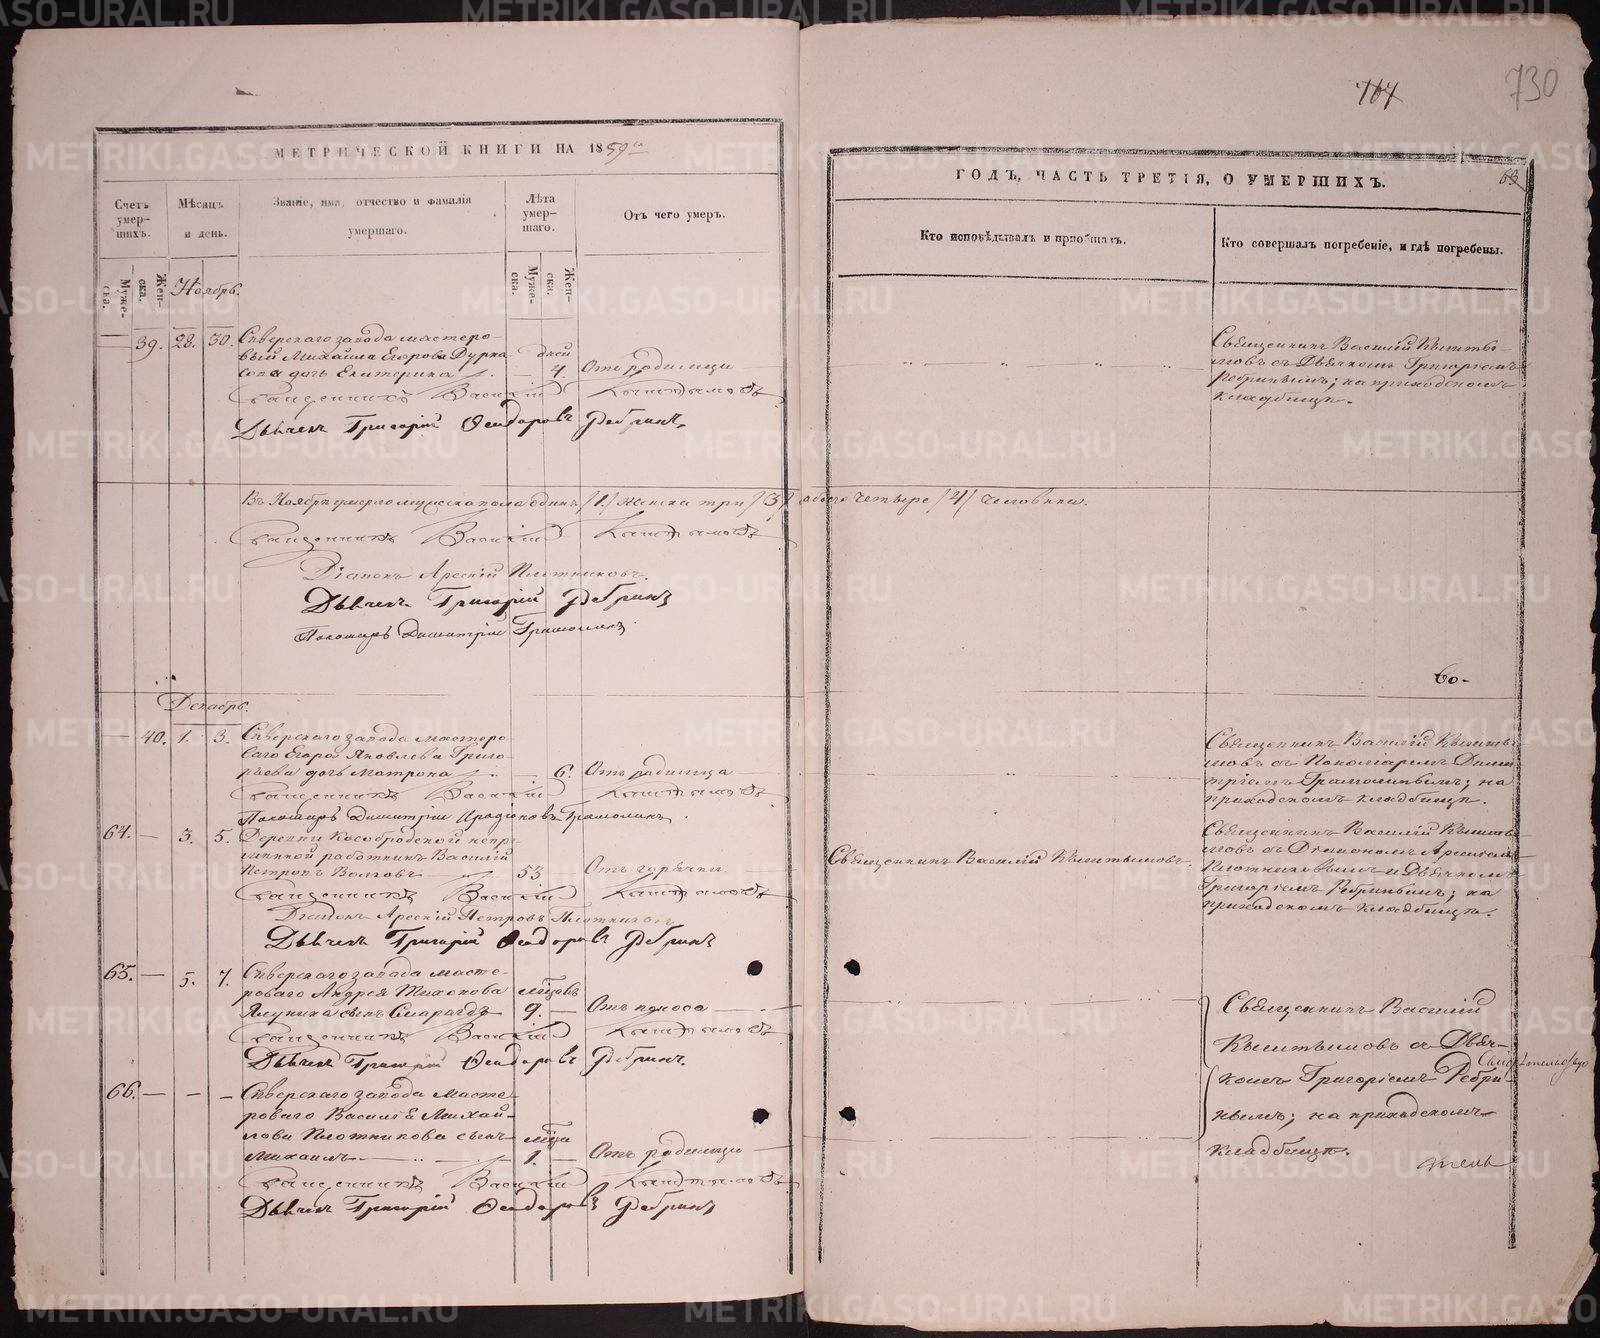 730
МЕТРИЧЕСКОЙ КНИГИ НА 1859
Счетъ умер-шихъ.
Мѣсяцъ и день.
Званіе, имя, отчество и фамилія умершаго.
Лѣта умер-шаго.
Отъ чего умеръ.
Муже-ска.
Жен-ска.
Муже-ска.
Жен-ска.
Ноябрь.
39. 28. 30. Сѣверскаго завода мастеро-
вый Михаила Егорова Дурна-
сова дочь Екатерина
дней
4
Отъ родимца
Священникъ Василій Кыштымовъ
Дьячекъ Григорій Ѳеодоровъ Ребринъ
Въ Ноябрѣ умерло мужеска пола одинъ /1/ женска три /3/ обоего четыре /4/ человѣка.
Священникъ Василій Кыштымовъ
Діаконъ Арсеній Плотниковъ.
Дьячекъ Григорій Ребринъ
Пономарь Димитрій Грамолинъ.
Декабрь.
40. 1. 3. Сѣверскаго завода мастеро-
ваго Егора Яковлева Григо-
рьева дочь Матрона
6.
Отъ родимца
Священникъ Василій Кыштымовъ
Пономарь Димитрій Грамолинъ.
64. 3. 5. Деревни Кособродской непре-
мѣнной работникъ Василій
Петровъ Волковъ
53
Отъ горячки
Священникъ Василій Кыштымовъ
Діаконъ Арсеній Петровъ Плотниковъ
Дьячекъ Григорій Ѳеодоровъ Ребринъ
65. 5. 7. Сѣверскаго завода масте-
роваго Андрея Тихонова
сынъ Смарагдъ
9.
Отъ поноса
Священникъ Василій Кыштымовъ
Дьячекъ Григорій Ѳеодоровъ Ребринъ.
66. Сѣверскаго завода масте-
роваго Василія Михай-
лова Плотникова сынъ
Михаилъ
1.
Отъ родимца
Священникъ Василій Кыштымовъ
Дьячекъ Григорій Ѳеодоровъ Ребринъ
ГОДЪ, ЧАСТЬ ТРЕТІЯ, О УМЕРШИХЪ.
Кто исповѣдывалъ и пріобщалъ.
Кто совершалъ погребеніе, и гдѣ погребены.
Священникъ Василій Кышты-
мовъ съ Дьячкомъ Григоріемъ
Ребринымъ; на приходскомъ
кладбищѣ.
Священникъ Василій Кышты-
мовъ съ Пономаремъ Дими-
тріемъ Грамолинымъ; на
приходскомъ кладбищѣ.
Священникъ Василій Кыштымовъ.
Священникъ Василій Кышты-
мовъ съ Діакономъ Арсеніемъ
Плотниковымъ и Дьячкомъ
Григоріемъ Ребринымъ; на
приходскомъ кладбищѣ.
Священникъ Василій
Кыштымовъ съ Дьяч-
комъ Григоріемъ Ребри-
нымъ; на приходскомъ
кладбищѣ.
METRIKI.GASO-URAL.RU